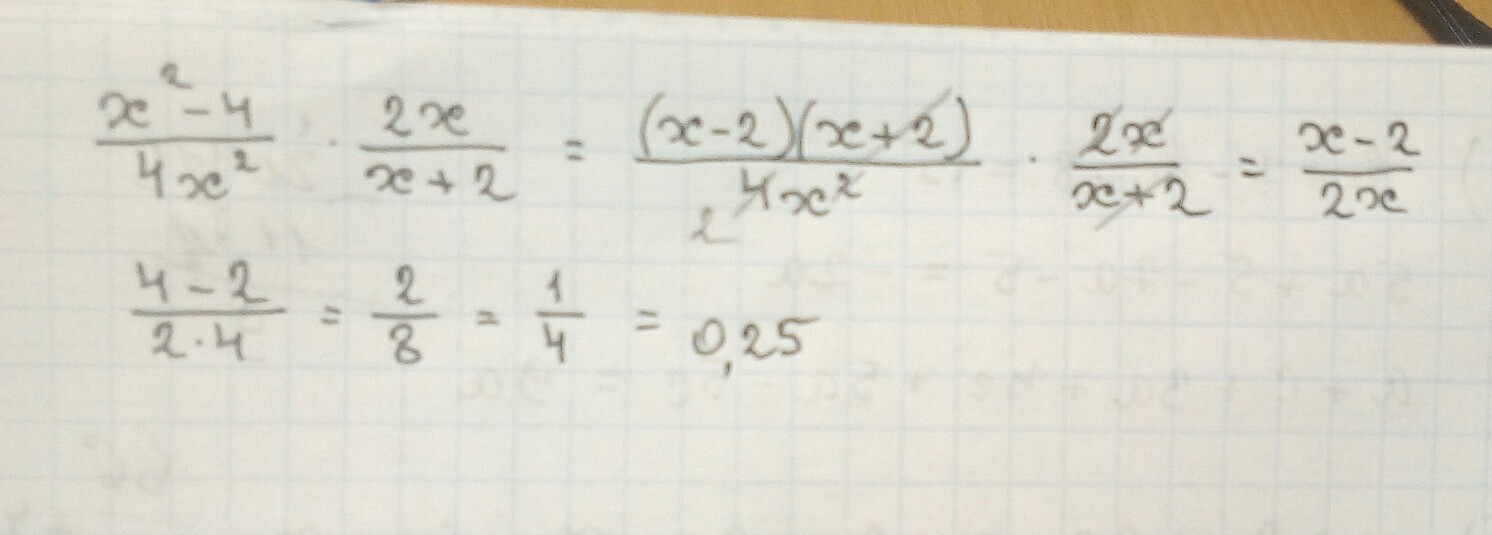 x² - 4 / 4x² · 2x / x + 2 = (x - 2)(x + 2) / 4x² 2 · 2x / x + 2 = x - 2 / 2x
4 - 2 / 2 · 4 = 2 / 8 = 1 / 4 = 0,25